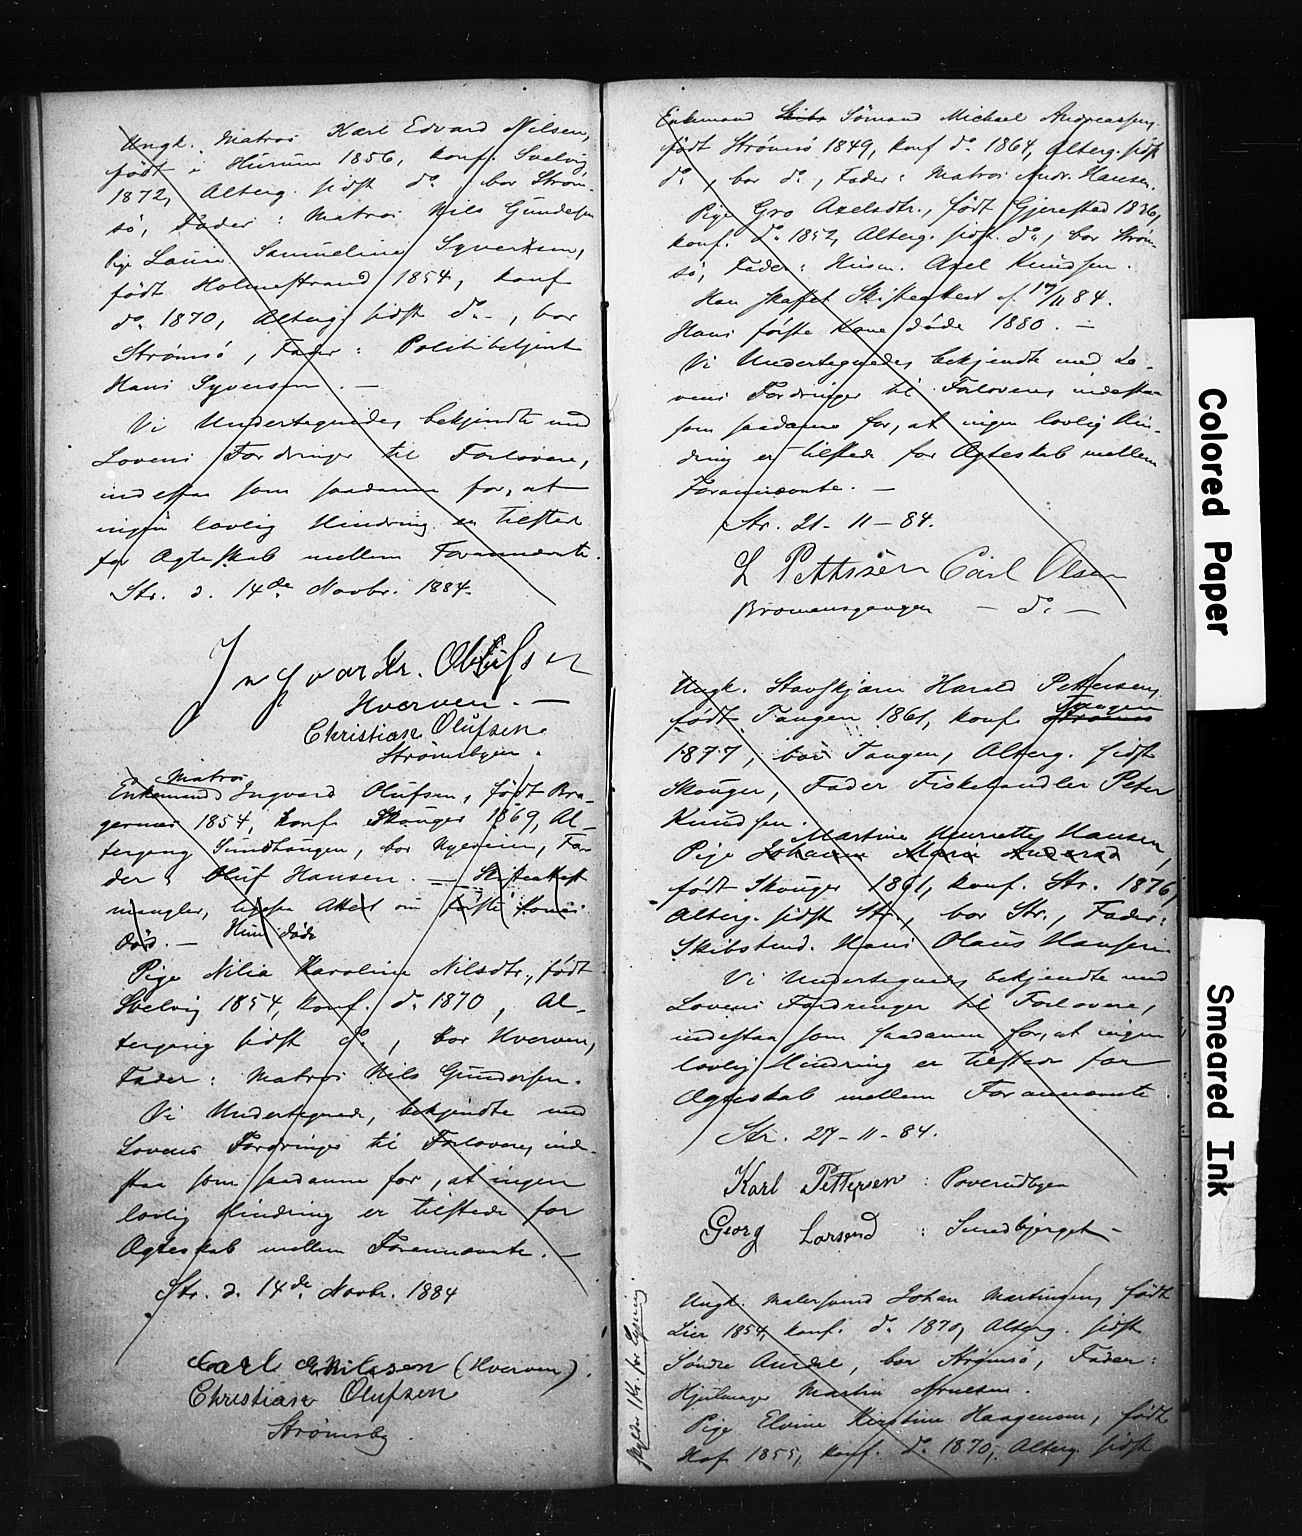 Ungk. Matros Karl Edvard Nilsen,
født i Hurum 1856, konf. Svelvig
1872, Alterg. sidst do., bor Strøm-
sø, Fader: Matros Nils Gundersen
Pige Laura Samueline Syversen,
født Holmestrand 1854, konf
do. 1870, Alterg. sidst do. -, bor
Strømsø, Fader: Politibetjent
Hans Syversen. —
Vi Undertegnede, bekjendte med
Lovens Fordringer til Forlovere,
indestaa som saadanne for, at
ingen lovlig Hindring er tilstede
for Ægteskab mellem Forannævnte.
Str. d. 14de Novbr. 1884.
Ingvar Olufsen
Hverven. —
Christian Olufsen.
Strømsbyen.
Matros
Enkemand Ingvard Olufsen, født Bra-
gernæs 1854, konf. Skouger 1869, Al-
tergang Sundhaugen, bor Hverven, Fa-
der: Oluf Hansen. — Skifteattest
mangler, ligesaa Attest om første Kones
Død. — Hun døde
Pige Nilia Karoline Nilsdtr., født
Svelvig 1854, konf. do. 1870, Al-
tergang sidst do., bor Hverven,
Fader: Matros Nils Gundersen.
Vi Undertegnede, bekjendte med
Lovens Fordringer til Forlovere, inde-
staa som saadanne for, at ingen
lovlig Hindring er tilstede for
Ægteskab mellem Forannævnte. —
Str. d. 14de Novbr. 1884
Carl E Nilssen (Hverven).
Christian Olufsen
Strømsby.
Enkemand Skibs Sømand Michael Andreassen,
født Strømsø 1849, konf do. 1864, Alterg. sidst
do., bor do., Fader: Matros Andr. Hansen.
Pige Gro Axelsdtr., født Gjerestad 1836,
konf. do. 1852, Alterg. sidst. do., bor Strøm-
sø, Fader: Husm. Axel Knudsen.
Han skaffet Skifteattest af 17/11 84.
Hans første Kone døde 1880. —
Vi Undertegnede, bekjendte med Lo-
vens Fordringer til Forlovere, indestaa
som saadanne for, at ingen lovlig Hin-
dring er tilstede for Ægteskab mellem
Forannævnte. —
Str. 21-11-84.
L Pettersen Carl Olsen
Bromansgangen — do. —
Ungk. Havskjær Harald Pettersen,
Tangen
født Tangen 1861, konf. Strømsø
1877, bor Tangen, Alterg. sidst
Skouger, Fader Fiskehandler Peter
Knudsen.
Martine Henriette Hansen,
Pige Johanne Marie
født Skouger 1861, konf. Str. 1876,
Alterg. sidst Str., bor Str., Fader:
Skibstmd. Hans Olaus Hansen
Vi Undertegnede, bekjendte med
Lovens Fordringer til Forlovere,
indestaa som saadanne for, at ingen
lovlig Hindring er tilstede for
Ægteskab mellem Forannævnte
Str. 27-11-84.
Karl Pettersen : Poverudbyen
Georg Larsen : Smedbjerget —
skylder 1 Kr. for Lysning.
Ungk. Malersvend Johan Martinsen, født
Lier 1854, konf. do. 1870, Alterg. sidst
Søndre Aurdal, bor Strømsø, Fader:
Hjulmager Martin Arnesen.
Pige Elvine Kirstine Haagensen, født
Hof 1855, konf. do. 1870, Alterg. sidst
Colored Paper
Smeared Ink